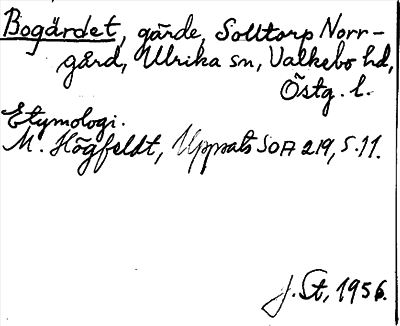 Bogärdet, gärde, Solltorp Norr-
gård, Ulrika sn, Valkebo hd,
Östg. l.
Etymologi.
M. Högfeldt, Uppsats SOA 219, s. 11.
J. St, 1956.